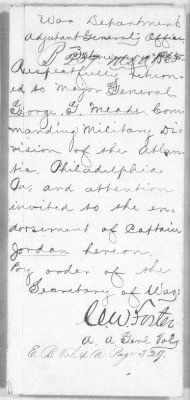 War Department
Adjutant General's Office
Respectfully return-
ed to Major General
George. G. Meade, Com
manding Military Di-
vision of the Atlan-
tic, Philadelphia
Pa, and attention
invited to the en-
dorsement of Captain
Jordan hereon.
By order of the
Secretary of War:
C. W. Foster
A. A. Genl. Vols
E. B. Vol. 4. Page 529.